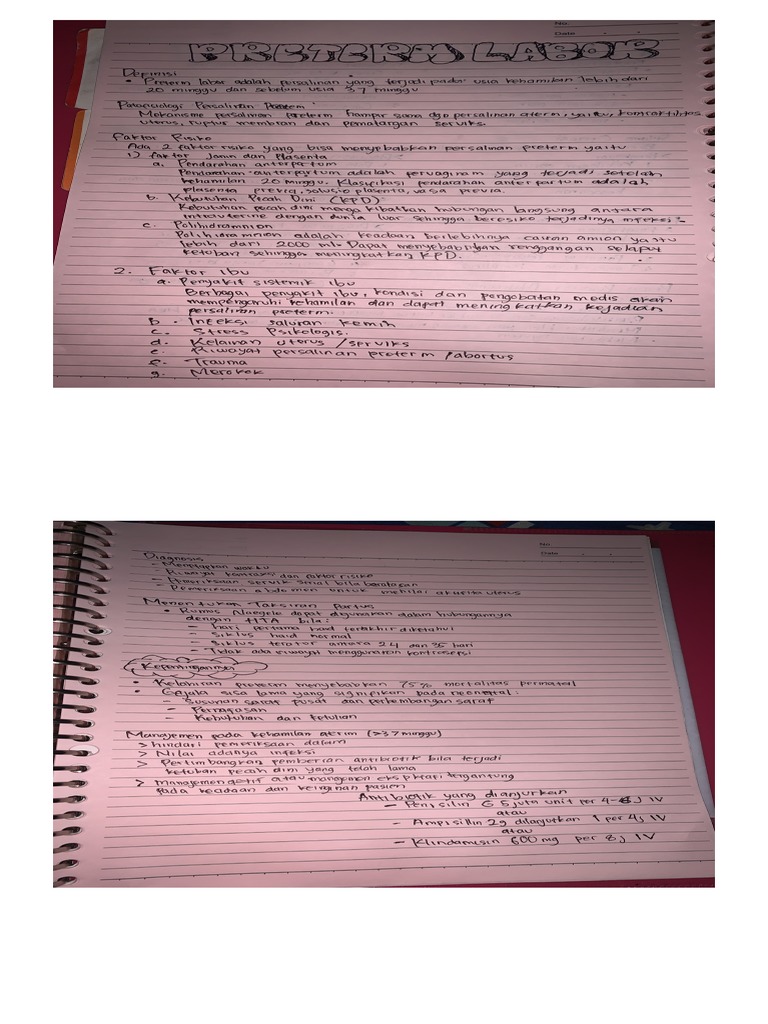 No.
Date
PRETERM LABOR
Definisi
• Preterm labor adalah persalinan yang terjadi pada usia kehamilan lebih dari
20 minggu dan sebelum usia 37 minggu
Patofisiologi Persalinan Preterm
Mekanisme persalinan preterm hampir sama dgn persalinan aterm, yaitu, kontraktilitas
uterus, ruptur membran dan pematangan serviks.
Faktor Risiko
Ada 2 faktor risiko yang bisa menyebabkan persalinan preterm yaitu
1) Faktor Janin dan Plasenta
a. Pendarahan anterpartum
Pendarahan anterpartum adalah pervaginam yang terjadi setelah
kehamilan 20 minggu. Klasifikasi pendarahan anterpartum adalah
plasenta previa, solusio plasenta, vasa previa.
b. Kebutuhan Pecah Dini (KPD)
Kebutuhan pecah dini mengakibatkan hubungan langsung antara
intrauterine dengan dunia luar sehingga beresiko terjadinya infeksi
c. Polihidramnion
Polihidramnion adalah keadaan berlebihnya cairan amion yaitu
lebih dari 2000 ml. Dapat menyebabkan renggangan selaput
ketuban sehingga meningkatkan KPD.
2. Faktor Ibu
a. Penyakit sistemik ibu
Berbagai penyakit ibu, kondisi dan pengobatan medis akan
mempengaruhi kehamilan dan dapat meningkatkan kejadian
persalinan preterm.
b. Infeksi saluran kemih
c. Stress Psikologis.
d. Kelainan uterus/serviks
e. Riwayat persalinan preterm/abortus
f. Trauma
g. Merokok
No.
Date
Diagnosis
- Menetapkan waktu
- Riwayat kontraksi dan faktor risiko
- Pemeriksaan servik serial bila beralasan
- Pemeriksaan abdomen untuk menilai uterus
Menentukan Taksiran Partus
• Rumus Naegele dapat digunakan dalam hubungannya
dengan HTA bila:
- hari pertama haid terakhir diketahui
- Siklus haid normal
- Siklus teratur antara 24 dan 35 hari
- Tidak ada riwayat menggunakan kontrasepsi
Kepentingannya
• Kelahiran preterm menyebabkan 75% mortalitas perinatal
• Gejala sisa lama yang signifikan pada neonatal:
- Susunan saraf pusat dan perkembangan saraf
- Pernapasan
- Kebutuhan dan ketulian
Manajemen pada kehamilan aterm (>37 minggu)
> hindari pemeriksaan dalam
> Nilai adanya infeksi
> Pertimbangkan pemberian antibiotik bila terjadi
ketuban pecah dini yang telah lama
> managemen aktif atau managemen ekspektasi tergantung
pada keadaan dan keinginan pasien
Antibiotik yang dianjurkan
- Penisilin G 5 juta unit per 4-6 j IV
atau
- Ampisillin 2g dilanjutkan 1 per 4 j IV
atau
- Klindamisin 600 mg per 8 j IV